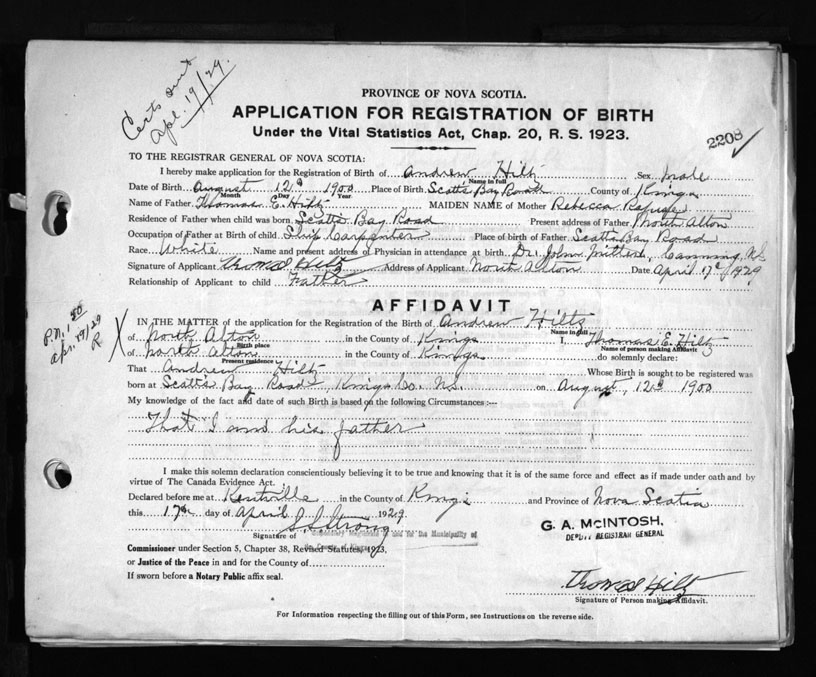 Certs sent
Apl. 19/29.
PROVINCE OF NOVA SCOTIA.
APPLICATION FOR REGISTRATION OF BIRTH
Under the Vital Statistics Act, Chap. 20, R. S. 1923.
2208
TO THE REGISTRAR GENERAL OF NOVA SCOTIA:
I hereby make application for the Registration of Birth of Andrew Hiltz Sex male
Name in full
Date of Birth August 12th 1900 Place of Birth Scotts Bay Road County of Kings
Month Day Year
Name of Father Thomas E. Hiltz MAIDEN NAME of Mother Rebecca Refuse
Residence of Father when child was born Scotts Bay Road Present address of Father North Alton
Occupation of Father at Birth of child Ship Carpenter Place of birth of Father Scotts Bay Road
Race White Name and present address of Physician in attendance at birth Dr. John Miller, Canning N.S.
Signature of Applicant Thomas Hiltz Address of Applicant North Alton Date April 17th 1929
Relationship of Applicant to child Father
AFFIDAVIT
P.N. 1.50
apr. 19/29
R
X
IN THE MATTER of the application for the Registration of the Birth of Andrew Hiltz
Name in full
of North Alton in the County of Kings I, Thomas E. Hiltz
Birth place Name of person making Affidavit
of North Alton in the County of Kings do solemnly declare:
Present residence
That Andrew Hiltz Whose Birth is sought to be registered was
born at Scotts Bay Road, Kings Co. N.S. on August, 12th 1900
My knowledge of the fact and date of such Birth is based on the following Circumstances:—
That I am his father
I make this solemn declaration conscientiously believing it to be true and knowing that it is of the same force and effect as if made under oath and by
virtue of The Canada Evidence Act.
Declared before me at Kentville in the County of Kings and Province of Nova Scotia
this 17th day of April 1929
S S Strong
Signature of Stipendiary Magistrate in and for the Municipality of
G. A. McINTOSH,
DEPUTY REGISTRAR GENERAL
Commissioner under Section 5, Chapter 38, Revised Statutes, 1923,
or Justice of the Peace in and for the County of
If sworn before a Notary Public affix seal.
Thomas Hiltz
Signature of Person making Affidavit.
For Information respecting the filling out of this Form, see Instructions on the reverse side.